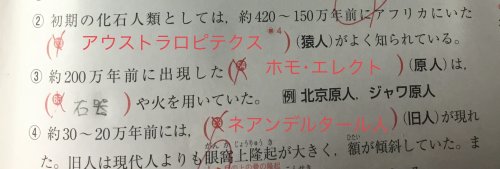 ② 初期の化石人類としては，約420～150万年前にアフリカにいた
(アウストラロピテクス※4)(猿人)がよく知られている。
③ 約200万年前に出現した(ホモ・エレクト)(原人)は，
(石器)や火を用いていた。 例 北京原人，ジャワ原人
④ 約30～20万年前には，(ネアンデルタール人)(旧人)が現れ
た。旧人は現代人よりも眼窩上隆起が大きく，額が傾斜していた。ま